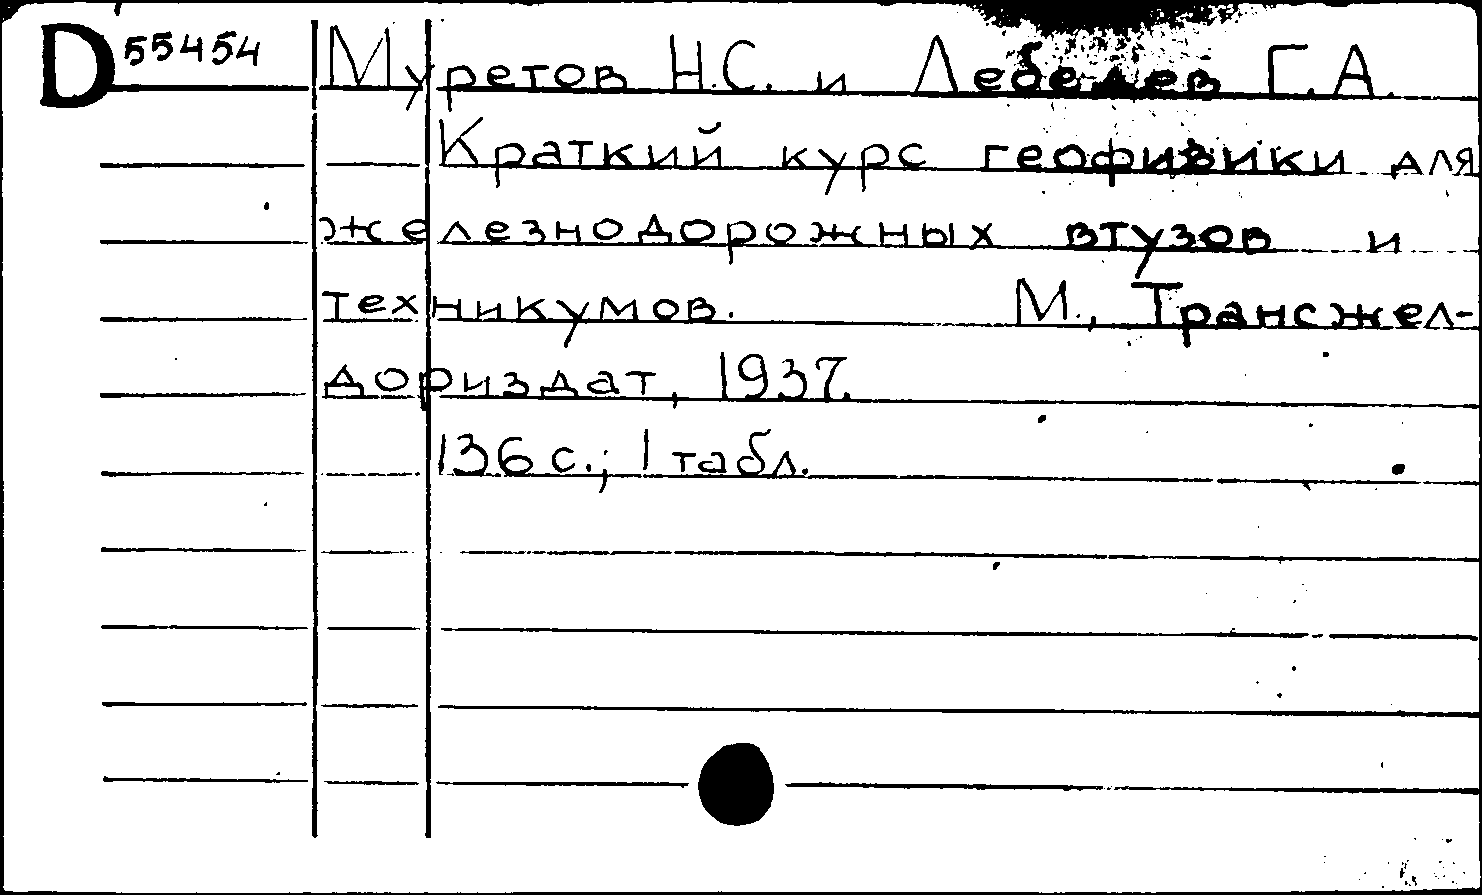 D 55454 Муретов Н.С. и Лебедев Г.А.
Краткий курс геофизики для
железнодорожных втузов и
техникумов. М., Трансжел-
дориздат, 1937.
136 с.; 1 табл.